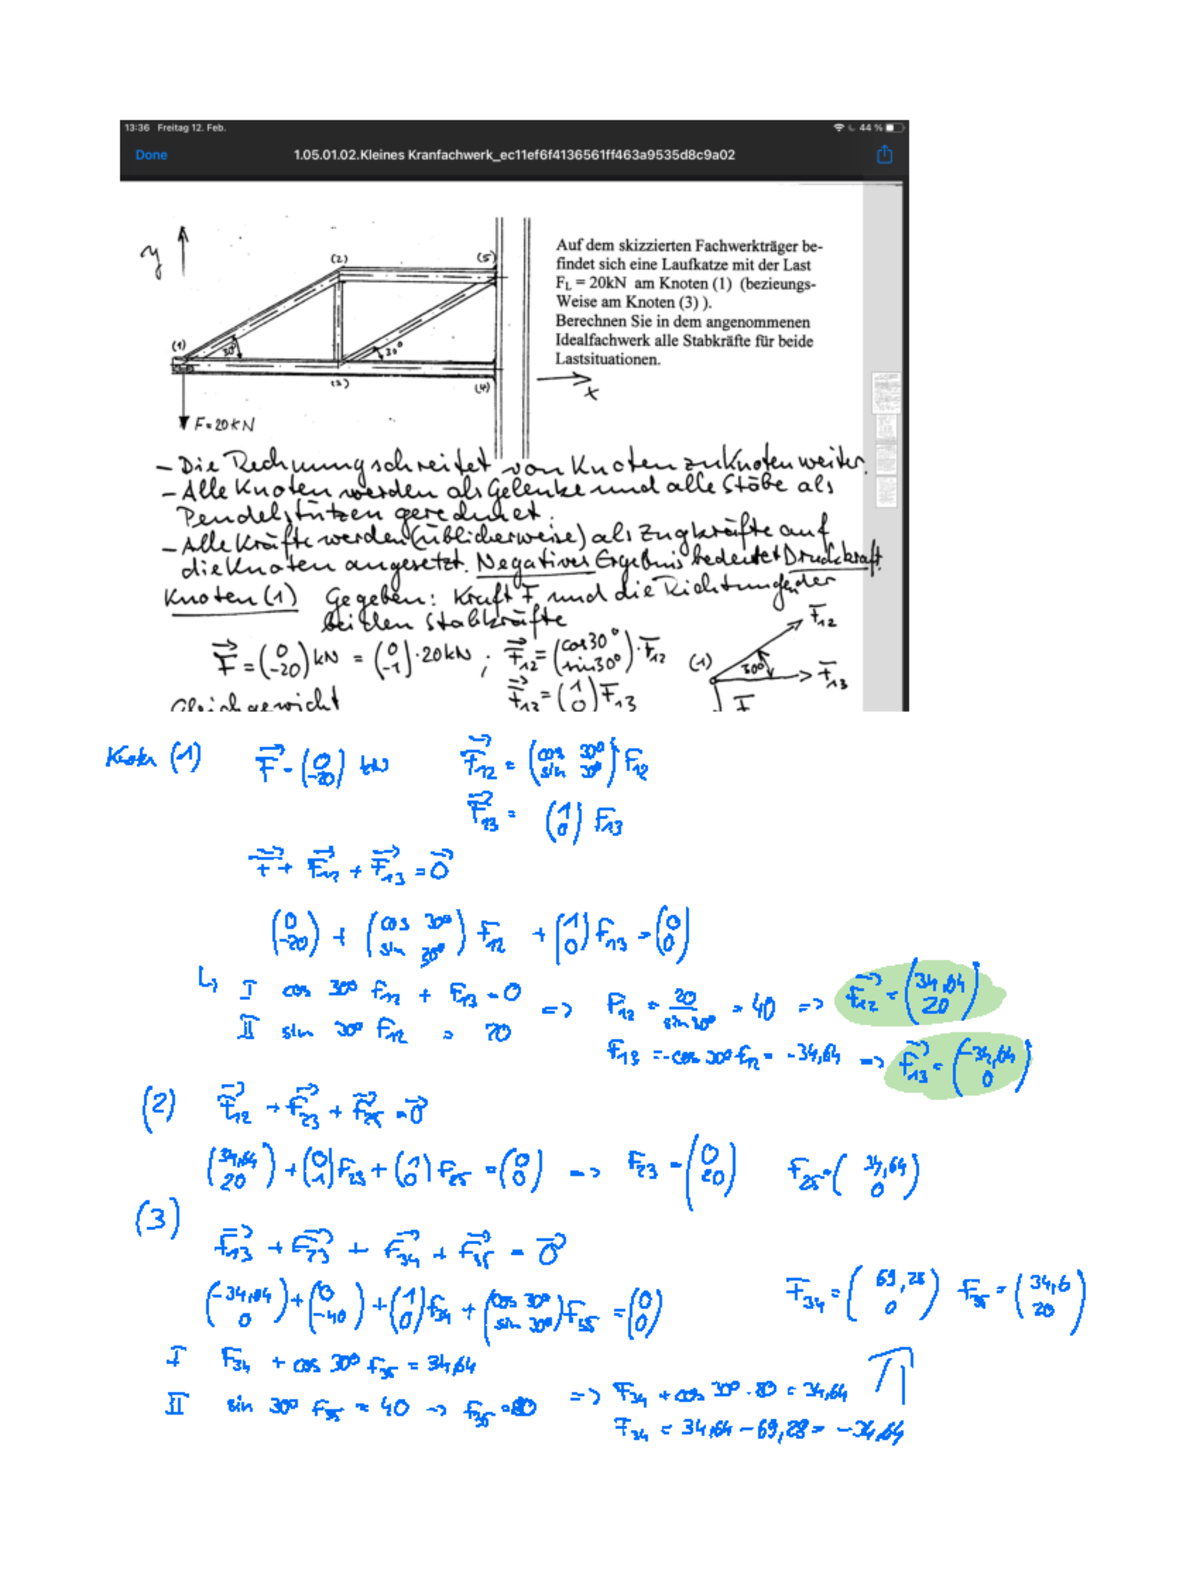 13:36 Freitag 12. Feb.
44 %
Done
1.05.01.02.Kleines Kranfachwerk_ec11ef6f4136561ff463a9535d8c9a02
y
(2)
(5)
(1)
30°
30°
(3)
(4)
F=20kN
x
Auf dem skizzierten Fachwerkträger be-
findet sich eine Laufkatze mit der Last
FL = 20kN am Knoten (1) (bezieungs-
Weise am Knoten (3) ).
Berechnen Sie in dem angenommenen
Idealfachwerk alle Stabkräfte für beide
Lastsituationen.
- Die Rechnung schreitet von Knoten zu Knoten weiter.
- Alle Knoten werden als Gelenke und alle Stäbe als
Pendelstützen gerechnet.
- Alle Kräfte werden (üblicherweise) als Zugkräfte auf
die Knoten angesetzt. Negatives Ergebnis bedeutet Druckkraft.
Knoten (1) Gegeben: Kraft F und die Richtungen der
beiden Stabkräfte
F⃗ = (0 / -20) kN = (0 / -1) · 20kN ; F⃗12 = (cos30° / sin30°) · F12
F⃗13 = (1 / 0) F13
(1) 30° F12 F13 F
Gleichgewicht
Knoten (1) F⃗ = (0 / -20) kN F⃗12 = (cos 30° / sin 30°) F12
F⃗13 = (1 / 0) F13
F⃗ + F⃗12 + F⃗13 = 0⃗
(0 / -20) + (cos 30° / sin 30°) F12 + (1 / 0) F13 = (0 / 0)
↳ I cos 30° F12 + F13 = 0 => F12 = 20 / sin 30° = 40 => F⃗12 = (34,64 / 20)
II sin 30° F12 = 20 F13 = -cos 30° F12 = -34,64 => F⃗13 = (-34,64 / 0)
(2) F⃗12 + F⃗23 + F⃗25 = 0⃗
(34,64 / 20) + (0 / 1) F23 + (1 / 0) F25 = (0 / 0) => F23 = (0 / 20) F25 = (34,64 / 0)
(3) F⃗13 + F⃗23 + F⃗34 + F⃗35 = 0⃗
(-34,64 / 0) + (0 / -40) + (1 / 0) F34 + (cos 30° / sin 30°) F35 = (0 / 0) F34 = (69,28 / 0) F35 = (34,6 / 20)
I F34 + cos 30° F35 = 34,64
II sin 30° F35 = 40 → F35 = 80 => F34 + cos 30° · 80 = 34,64
F34 = 34,64 - 69,28 = -34,64